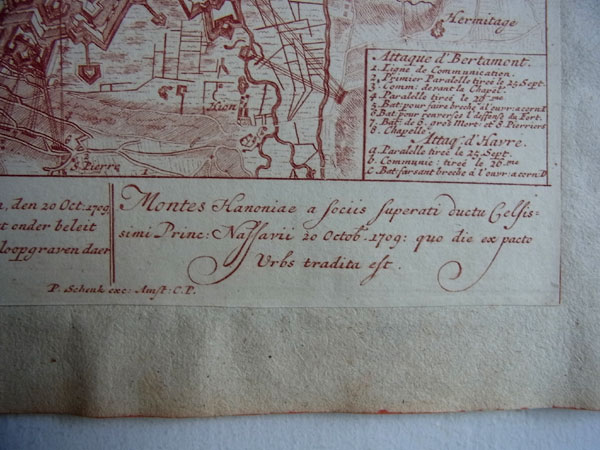 Hermitage
Attaque d'Bertamont.
1. Ligne de Communication.
2. Premier Paralelle tireé le 25 Sept.
3. Comm: devant la Chapel.
4. Paralelle tireé le 28me
5. Bat: pour faire breche à l'ouvr: a corn A
6. Bat: pour renverser l'deffense du Fort.
7. Bat: de 6 gros Mort: et 8 Pierriers
8. Chapelle.
Attaq: d'Havre.
a. Paralelle tireé le 25 Sept.
b. Communic: tireé le 26me
c. Bat: faisant breche à l'ouvr: a corn D
Hion
S. Pierre
n, den 20 Oct: 1709
t onder beleit
loopgraven daer
Montes Hanoniae a sociis superati ductu Celsis-
simi Princ: Nassavii 20 Octob. 1709: quo die ex pacto
Urbs tradita est.
P. Schenk exc: Amst: C.P.